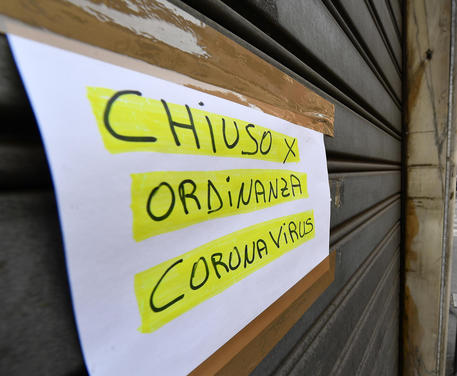 CHIUSO X
ORDiNANZA
CORONAViRUS